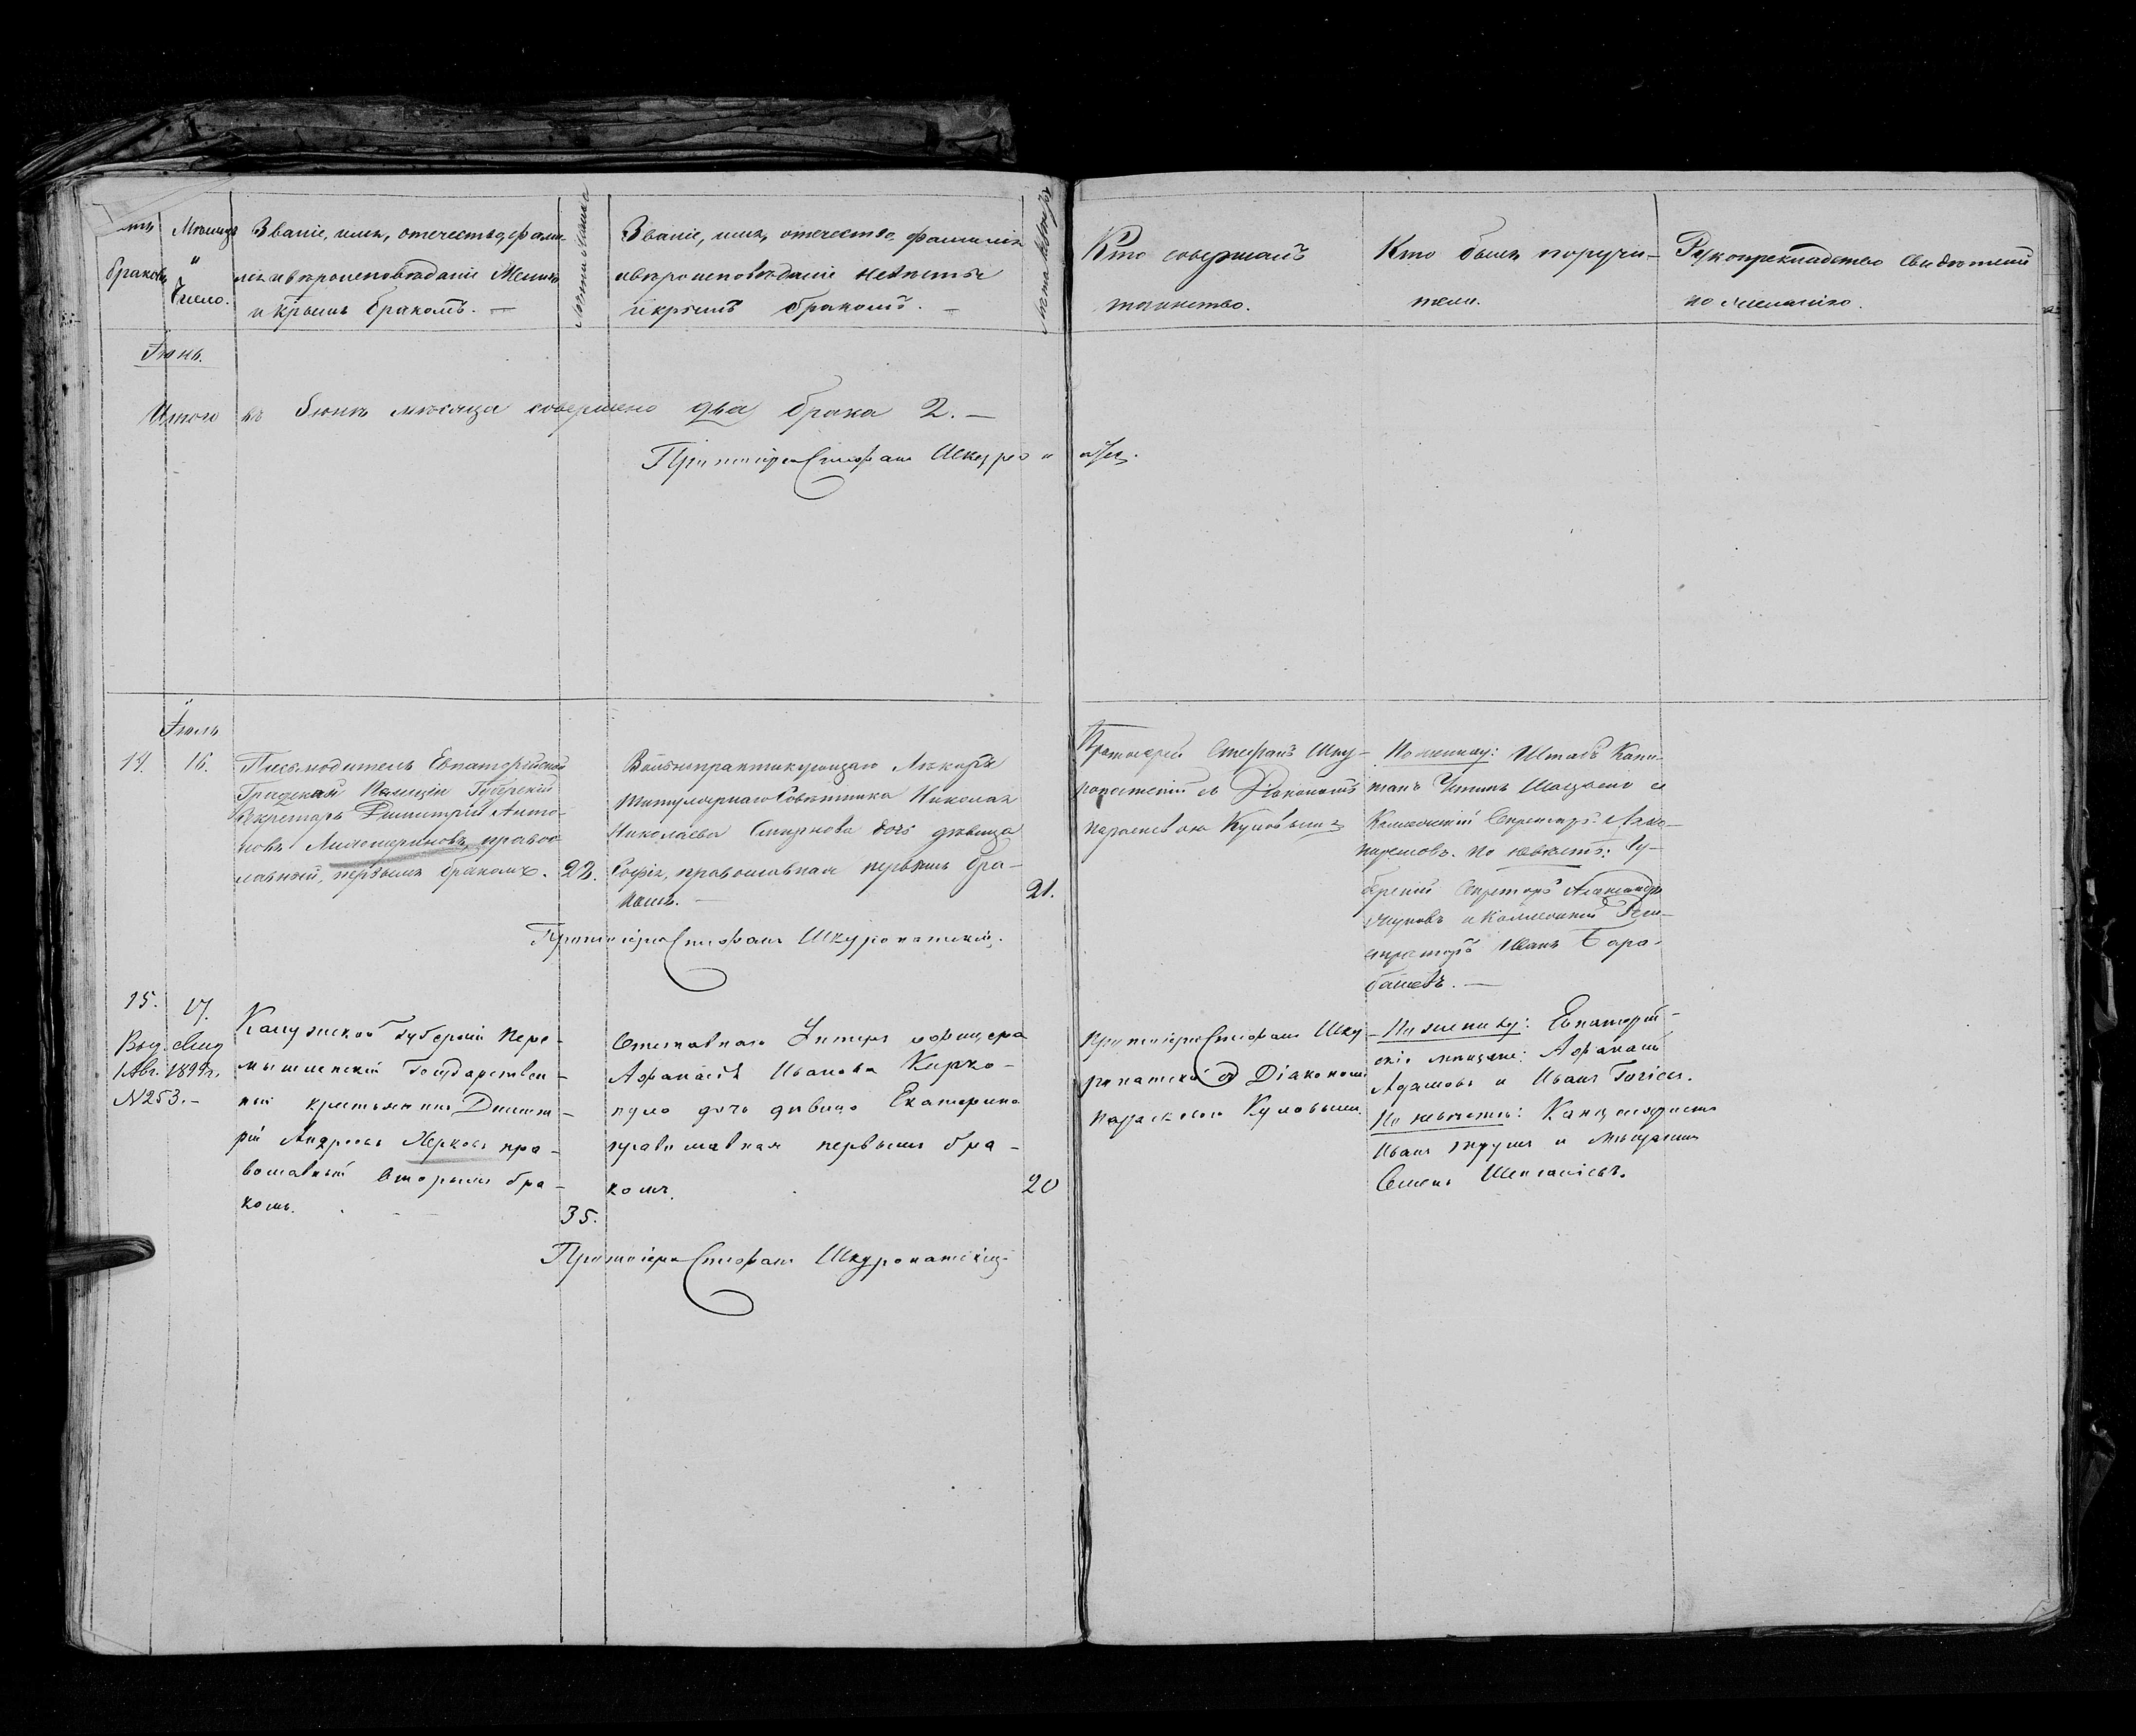 Мѣсяцъ
Звание, имя, отечество, фами-
Лѣта жениха
Звание, имя, отечество, фамилія
Лѣта невѣсты
браковъ
и
Число.
лія и вѣроисповѣданіе Жениха
и кбімъ бракомъ. —
и вѣроисповѣданіе невѣсты
и кбімъ бракомъ. —
Кто совершалъ
таинство.
Кто былъ поручи-
тели.
Рукоприкладство свидѣтелей
по желанію.
Іюнь.
Итого въ Іюнѣ мѣсяцѣ совершено два брака 2. —
Протоіерей Стефанъ Шкуропатскій.
Іюль
14.
16.
Письмоводитель Евпаторійской
Градской Полиціи Губернскій
Секретарь Димитрій Анто-
новъ православ-
лавный, первымъ бракомъ.
22.
Вольнопрактикующаго Лѣкаря
Титулярнаго Совѣтника Николая
Николаева Смирнова дочь дѣвица
Софія, православная первымъ бра-
комъ. —
21.
Протоіерей Стефанъ Шку-
ропатскій съ Діакономъ
Кулбвымъ
По женихѣ: Штабъ Капи-
танъ и
Секретарь
По невѣстѣ: Гу-
бернскій Секретарь Александръ
и Коллежскій Реги-
страторъ Иванъ Бара-
башевъ. —
Протоіерей Стефанъ Шкуропатскій.
15.
17.
Выд. свид
1 Авг. 1894г.
N 253. —
Калужской Губерніи Пере-
мышльскій Государствен-
ный крестьянинъ Димит-
рій Андреевъ Жерковъ пра-
вославный вторымъ бра-
комъ.
35.
Отставнаго Унтеръ офицера
Афанасія Иванова Кирко-
пуло дочь дѣвица Екатерина
православная первымъ бра-
комъ.
20
Протоіерей Стефанъ Шку-
ропатскій съ Діакономъ
Кулбвымъ.
По женихѣ: Евпаторій-
скіе мѣщане: Афанасій
Адамовъ и Иванъ
По невѣстѣ: Канцеляристъ
Иванъ и Мѣщанинъ
Семенъ
Протоіерей Стефанъ Шкуропатскій.